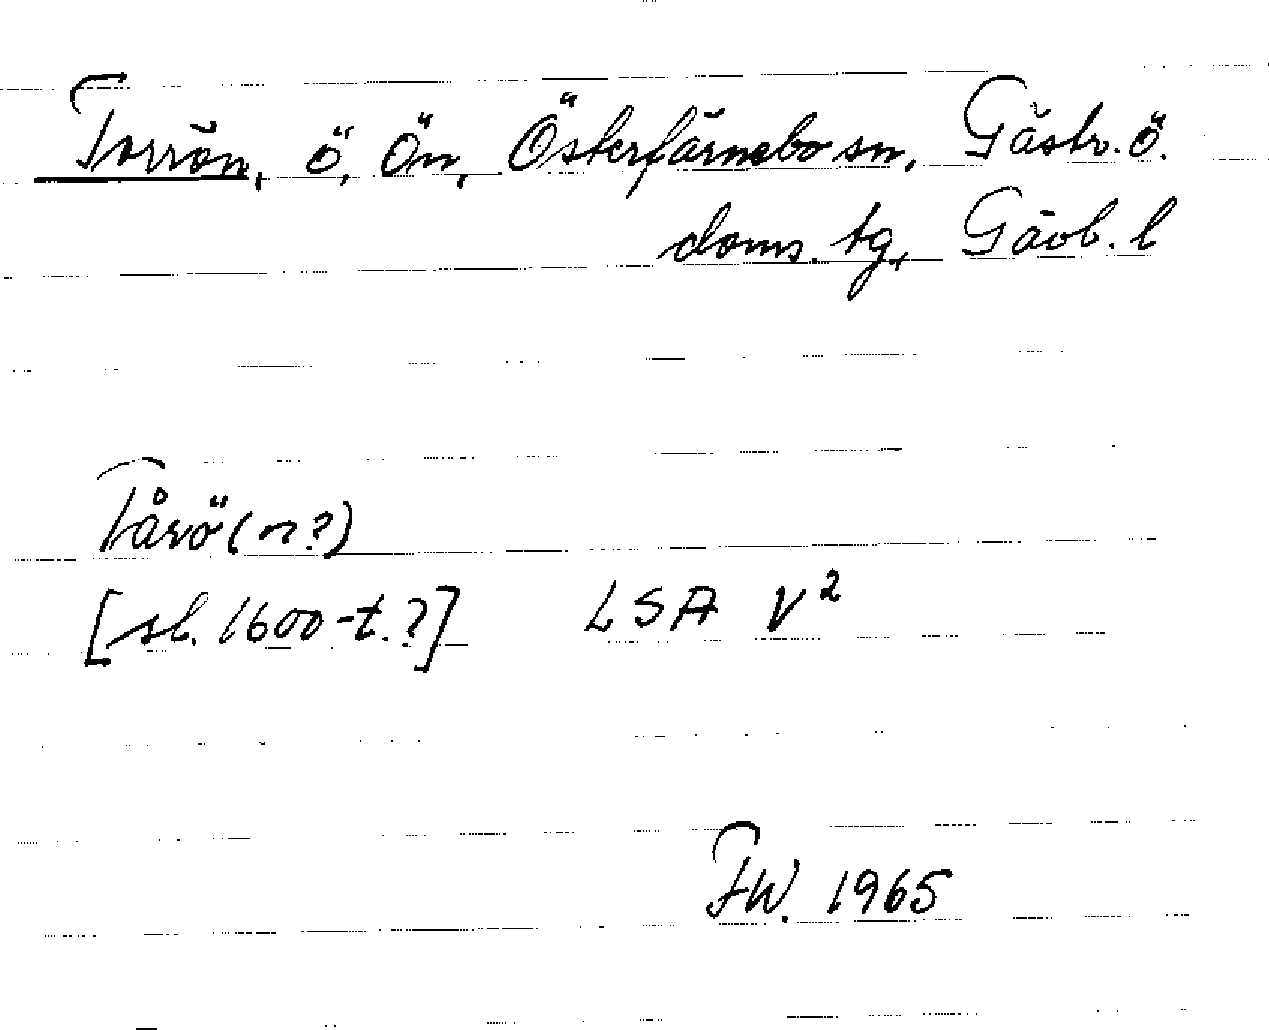 Torrön, ö, Ön, Österfärnebo sn, Gästr. ö.
doms. tg, Gävb. l
Tårö(n?)
[sl. 1600-t.?] LSA V²
FW. 1965